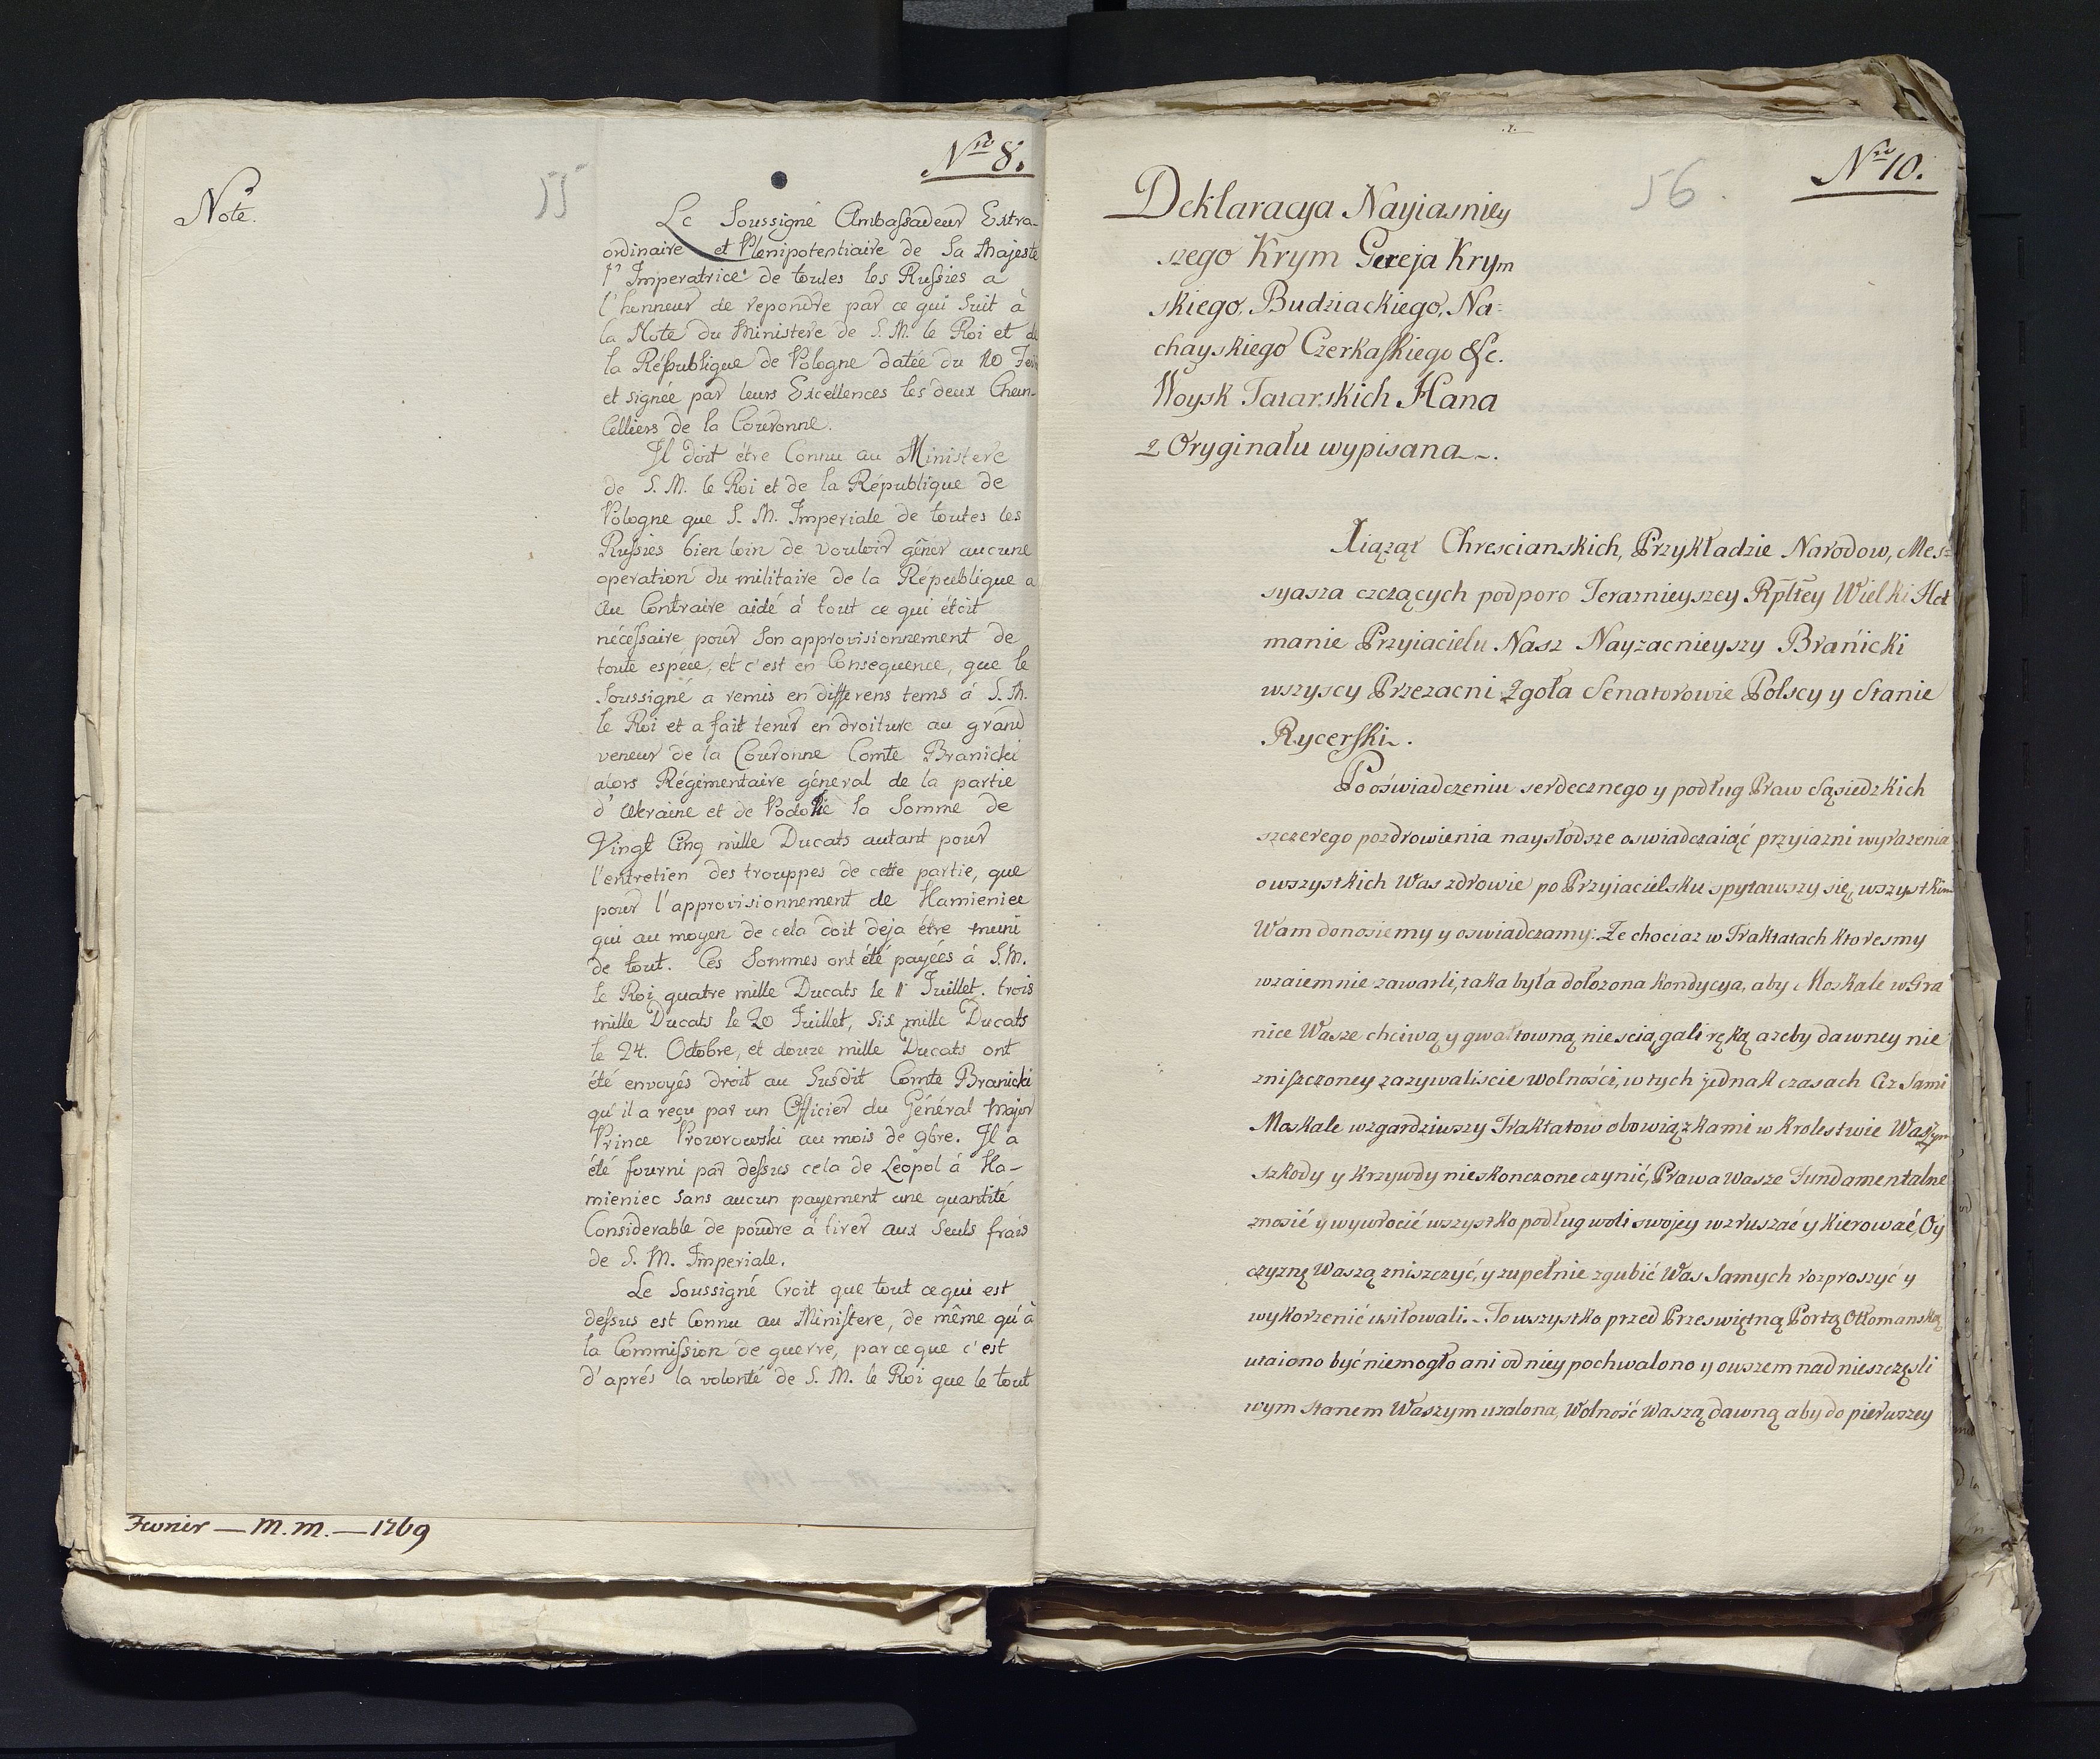 Note.
55
Nro 8.
Le Soussigné Ambassadeur Extra-
ordinaire et Plenipotentiaire de Sa Majeste
l'Imperatrice de toutes les Russies a
l'honneur de repondre par ce qui suit à
la Note du Ministere de S. M. le Roi et de
la République de Pologne datée du 20 Fevr
et signée par leurs Excellences les deux Chan-
celliers de la Couronne.
Il doit étre Connu au Ministere
de S. M. le Roi et de la République de
Pologne que S. M. Imperiale de toutes les
Russies bien loin de vouloir gêner aucune
operation du militaire de la République a
au Contraire aidé à tout ce qui étoit
nécessaire pour Son approvisionnement de
toute espéce, et c'est en Consequence, que le
Soussigné a remis en differens tems à S. M.
le Roi et a fait tenir en droiture au grand
veneur de la Couronne Comte Branicki
alors Régimentaire géneral de la partie
d'Ukraine et de Podolie la Somme de
Vingt Cinq mille Ducats autant pour
l'entretien des trouppes de cette partie, que
pour l'approvisionnement de Kamieniec
qui au moyen de cela doit deja étre muni
de tout. Ces Sommes ont été payées à S. M.
le Roi quatre mille Ducats le 11 Juillet. trois
mille Ducats le 20 Juillet, Six mille Ducats
le 24. Octobre, et douze mille Ducats ont
été envoyés droit au Susdit Comte Branicki
qu'il a reçu par un Officier du Général Major
Prince Prozorowski au mois de 9bre. Il a
été fourni par dessus cela de Leopol à Ka-
mieniec Sans aucun payement une quantité
Considerable de poudre à tirer aux Seuls frais
de S. M. Imperiale.
Le Soussigné Croit que tout ce qui est
dessus est Connu au Ministere, de même qu'à
la Commission de guerre, parceque c'est
d'aprés la volonté de S. M. le Roi que le tout
Fevrier — M. M. — 1769
56.
Nro 10.
Deklaracya Nayiasniey
szego Krym Gereja Krym
skiego, Budziackiego, Na=
chayskiego Czerkaskiego &c.
Woysk Tatarskich Hana
z Oryginału wypisana.
Xiążąt Chrescianskich, Przykładzie Narodow, Mes=
syasza czczących podporo Teraznieyszey Rpltey Wielki Het
manie Przyiacielu Nasz Nayzacnieyszy Branicki
wszyscy Przezacni zgoła Senatorowie Polscy y Stanie
Rycerski.
Po oświadczeniu serdecznego y podług Praw Sąsiedzkich
szczerego pozdrowienia naysłodsze oswiadczaiąć przyiazni wyrazenia
o wszystkich Was zdrowie po Przyiacielsku spytawszy się, wszystkim
Wam donosiemy y oswiadczamy: Ze chociaz w Traktatach ktoresmy
wzaiemnie zawarli, taka była dołozona kondycya, aby Moskale w Gra
nice Wasze chciwą y gwałtowną nie sciągali ręką azeby dawney nie
zniszczoney zazywaliscie wolności, w tych jednak czasach Ciz Sami
Moskale wzgardziwszy Traktatow obowiązkami w Krolestwie Waszym
szkody y krzywdy nieskonczone czynić, Prawa Wasze Fundamentalne
znosić y wywrocić wszystko podług woli swojey wzruszać y kierować, Oy
czyznę Waszą zniszczyć, y zupełnie zgubić Was Samych rozproszyć y
wykorzenić usiłowali. To wszystko przed Przeswiętną Portą Ottomanską
utaiono być niemogło ani od niey pochwalono y owszem nad nieszczęsli
wym stanem Waszym uzalona, Wolność Waszą dawną aby do pierwszey